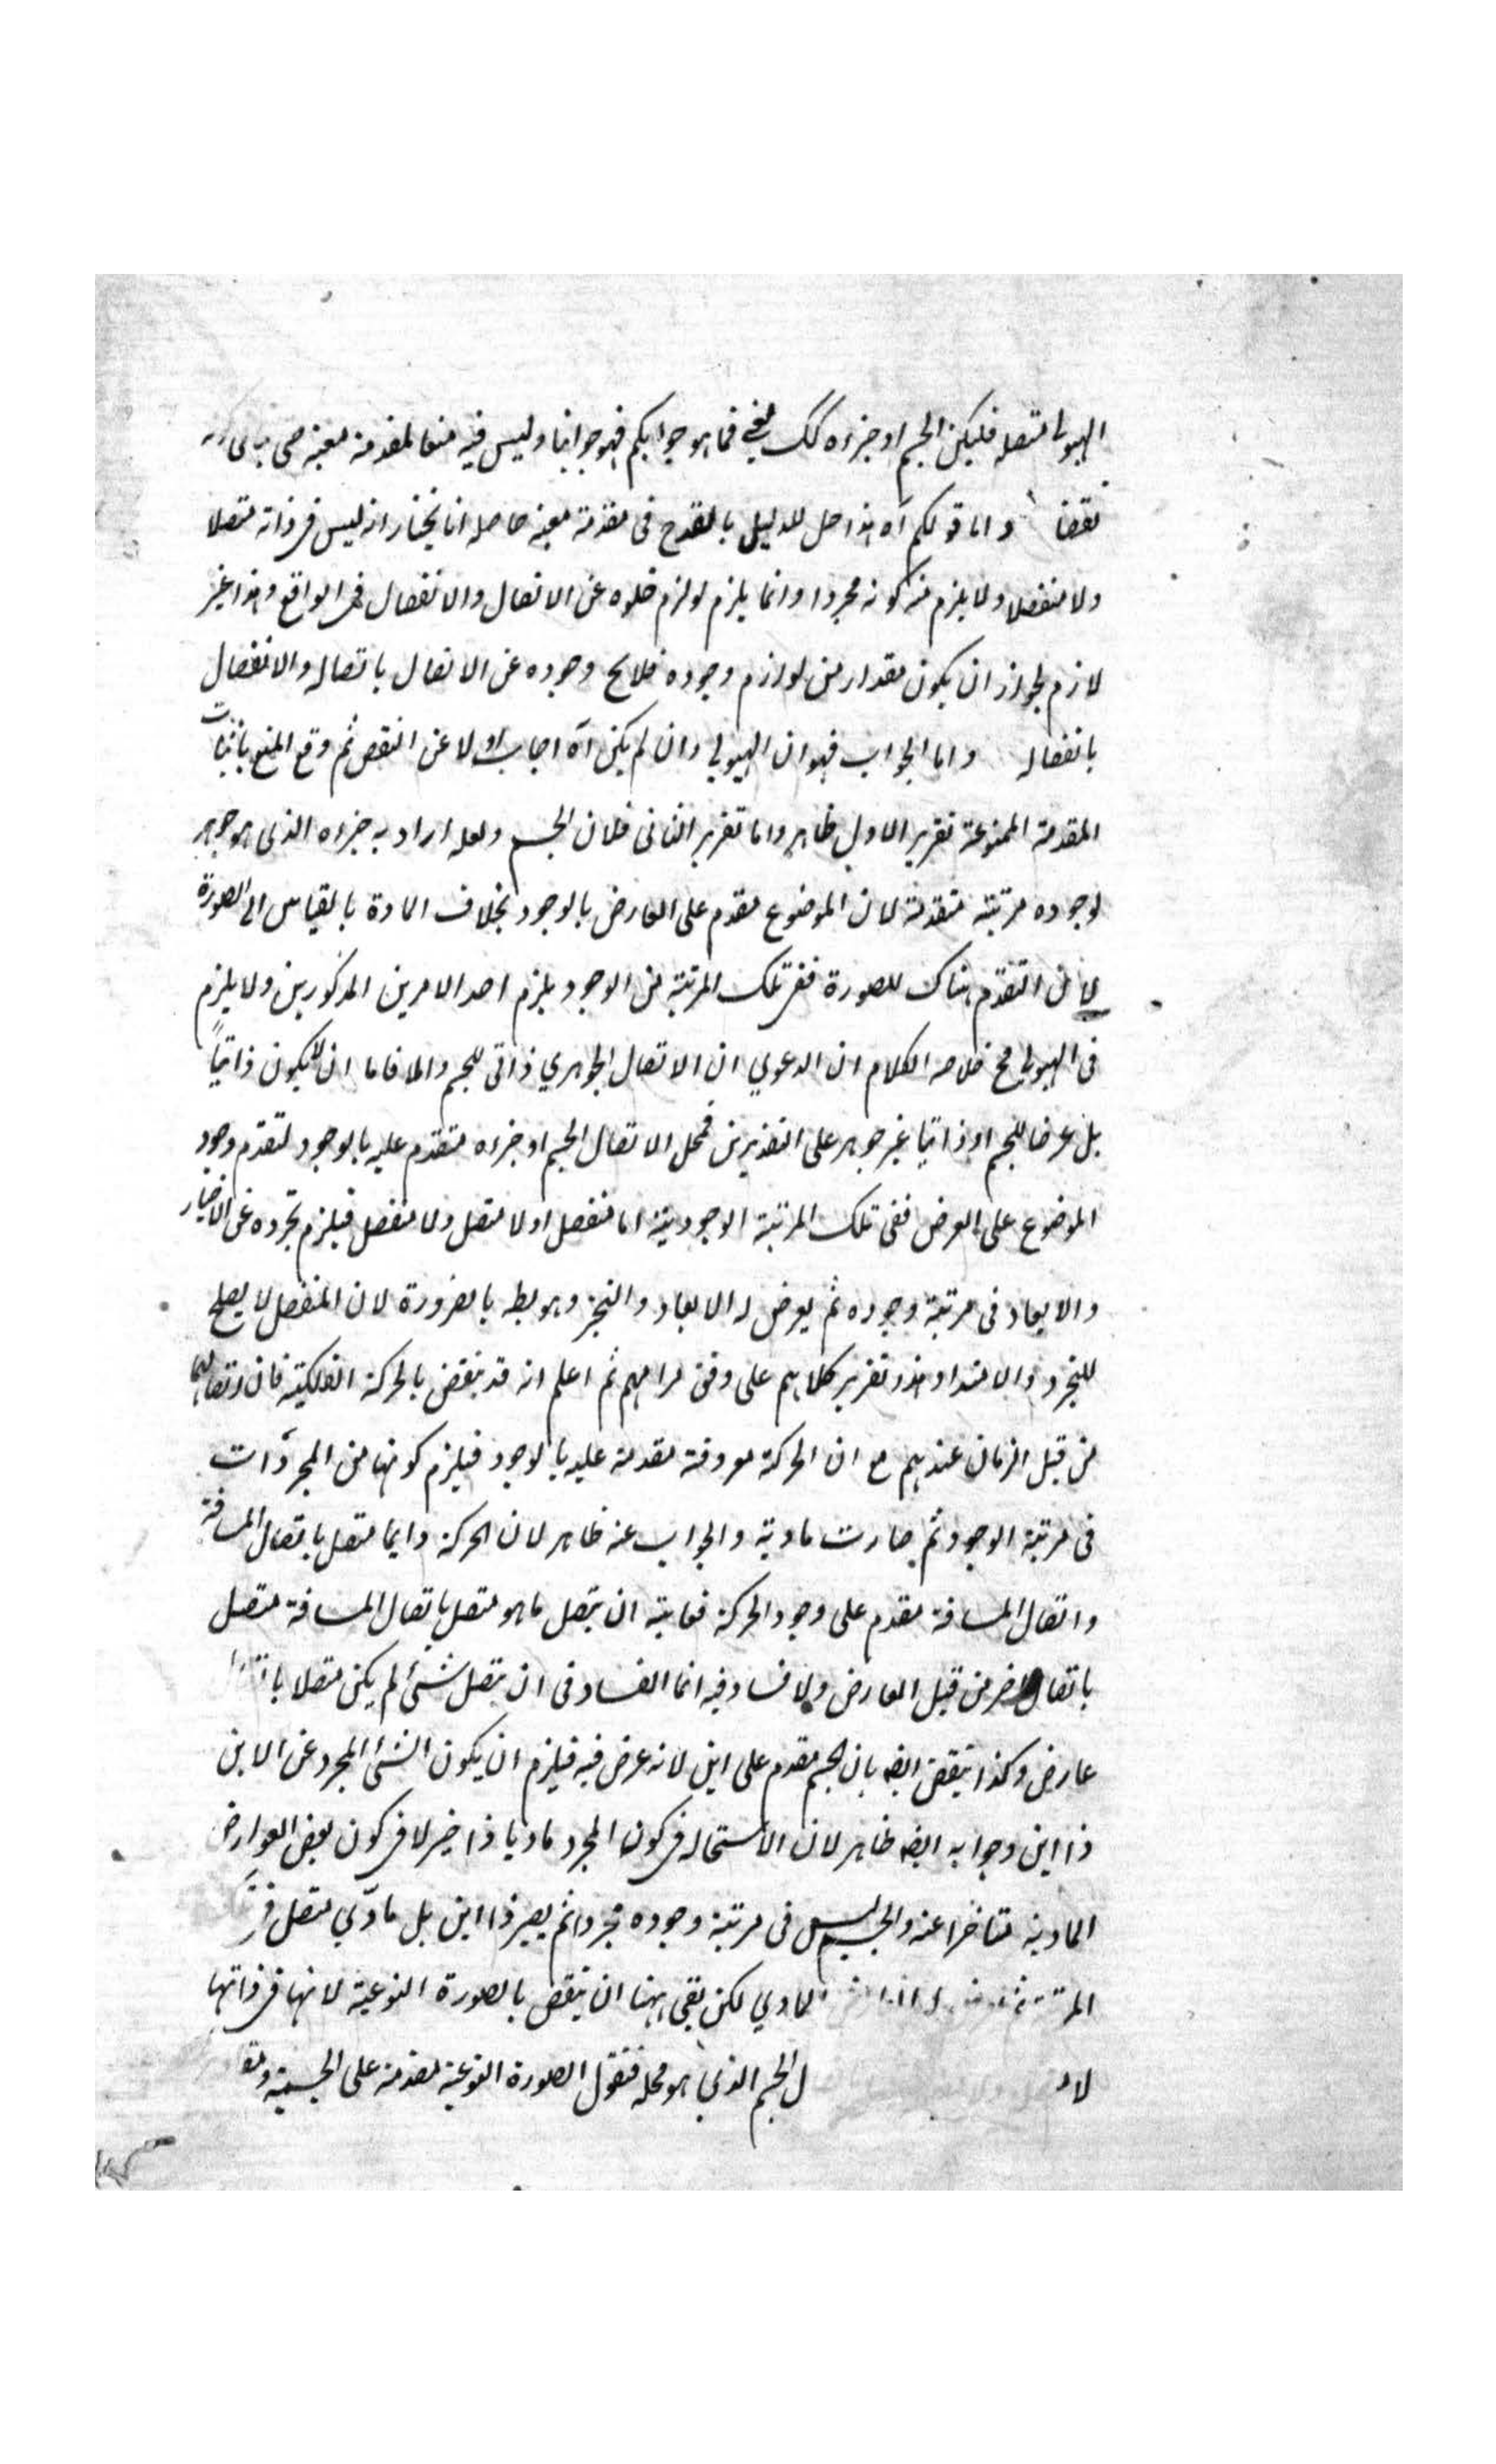 الهيولى متصلة فليكن الجسم او جزءه كك فما هو جوابكم فهو جوابنا وليس فيه منعا لمقدمة معينة حتى
نقضا واما قولكم آه هذا حل للدليل بالقدح فى مقدمة معينة حاصله انا نختار انه ليس فى ذاته متصلا
ولا منفصلا ولا يلزم منه كونه مجردا وانما يلزم لو لزم خلوه عن الاتصال والانفصال فى الواقع وهذا غير
لازم لجواز ان يكون مقدار من لوازم وجوده فلا يخ وجوده عن الاتصال باتصاله والانفصال
بانفصاله واما الجواب فهو ان الهيولى وان لم يكن آه اجاب اولا عن النقض ثم وقع المنع باثبات
المقدمة الممنوعة تقرير الاول ظاهر واما تقرير الثانى فلان الجسم ولعله اراد به جزءه الذى هو جوهر
لوجوده مرتبة متقدمة لان الموضوع مقدم على العارض بالوجود بخلاف المادة بالقياس الى الصورة
لان التقدم هناك للصورة ففى تلك المرتبة من الوجود يلزم احد الامرين المذكورين ولا يلزم
فى الهيولى خلاصة الكلام ان الدعوى ان الاتصال الجوهرى ذاتى للجسم والا فاما ان لا يكون ذاتياً
بل عرضا للجسم او ذاتيا غير جوهر على التقديرين فمحل الاتصال الجسم او جزءه متقدم عليه بالوجود لتقدم وجود
الموضوع على العرض ففى تلك المرتبة الوجودية اما منفصل او لا متصل ولا منفصل فيلزم تجرده عن الاحياز
والابعاد فى مرتبة وجوده ثم يعرض له الابعاد والتحيز وهو بط بالضرورة لان المنفصل لا يصلح
للتجرد والامتداد هذا تقرير كلامهم على وفق مرامهم ثم اعلم انه قد ينقض بالحركة الفلكية فان اتصالها
من قبل الزمان عندهم مع ان الحركة معروضة مقدمة عليه بالوجود فيلزم كونها من المجردات
فى مرتبة الوجود ثم صارت مادية والجواب عنه ظاهر لان الحركة دايما متصل باتصال المسافة
واتصال المسافة مقدم على وجود الحركة فغايته ان يتصل ما هو متصل باتصال المسافة متصل
باتصال اخر من قبل العارض ولا فساد فيه انما الفساد فى ان يتصل شئ لم يكن متصلا
عارض وكذا ينقض ايضه بان الجسم مقدم على اين لانه عرض فيه فيلزم ان يكون الشئ المجرد عن الاين
ذا اين وجوابه ايضه ظاهر لان الاستحالة فى كون المجرد ماديا ذا حيز لا فى كون بعض العوارض
المادية متاخرا عنه والجسم ليس فى مرتبة وجوده مجردا ثم يصير ذا اين بل مادى متصل فى
لمادى لكن بقى ههنا ان ينقض بالصورة النوعية لانها فى ذاتها
الجسم الذى هو محله فنقول الصورة النوعية مقدمة على الجسمية